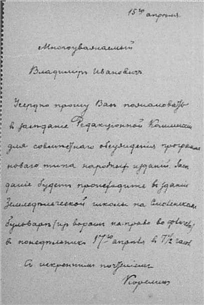 15го апреля.
Многоуважаемый
Владимир Иванович
Усердно прошу Вас пожаловать
в заседание Редакционной Комиссии
для совместного обсуждения программы
нового типа народных изданий. Засе
дание будет происходить в здании
Земледельческой школы на Смоленском
бульваре (из ворот направо во дворе)
в понедельник 17го апреля в 7½ час
С искренним почтением